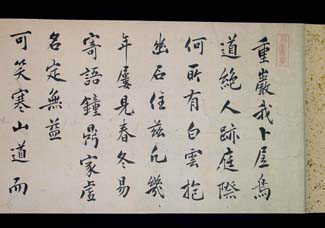 重巖我卜居鳥
道絕人跡庭際
何所有白雲抱
幽石住茲凡幾
年屢見春冬易
寄語鐘鼎家虛
名定無益
可笑寒山道而